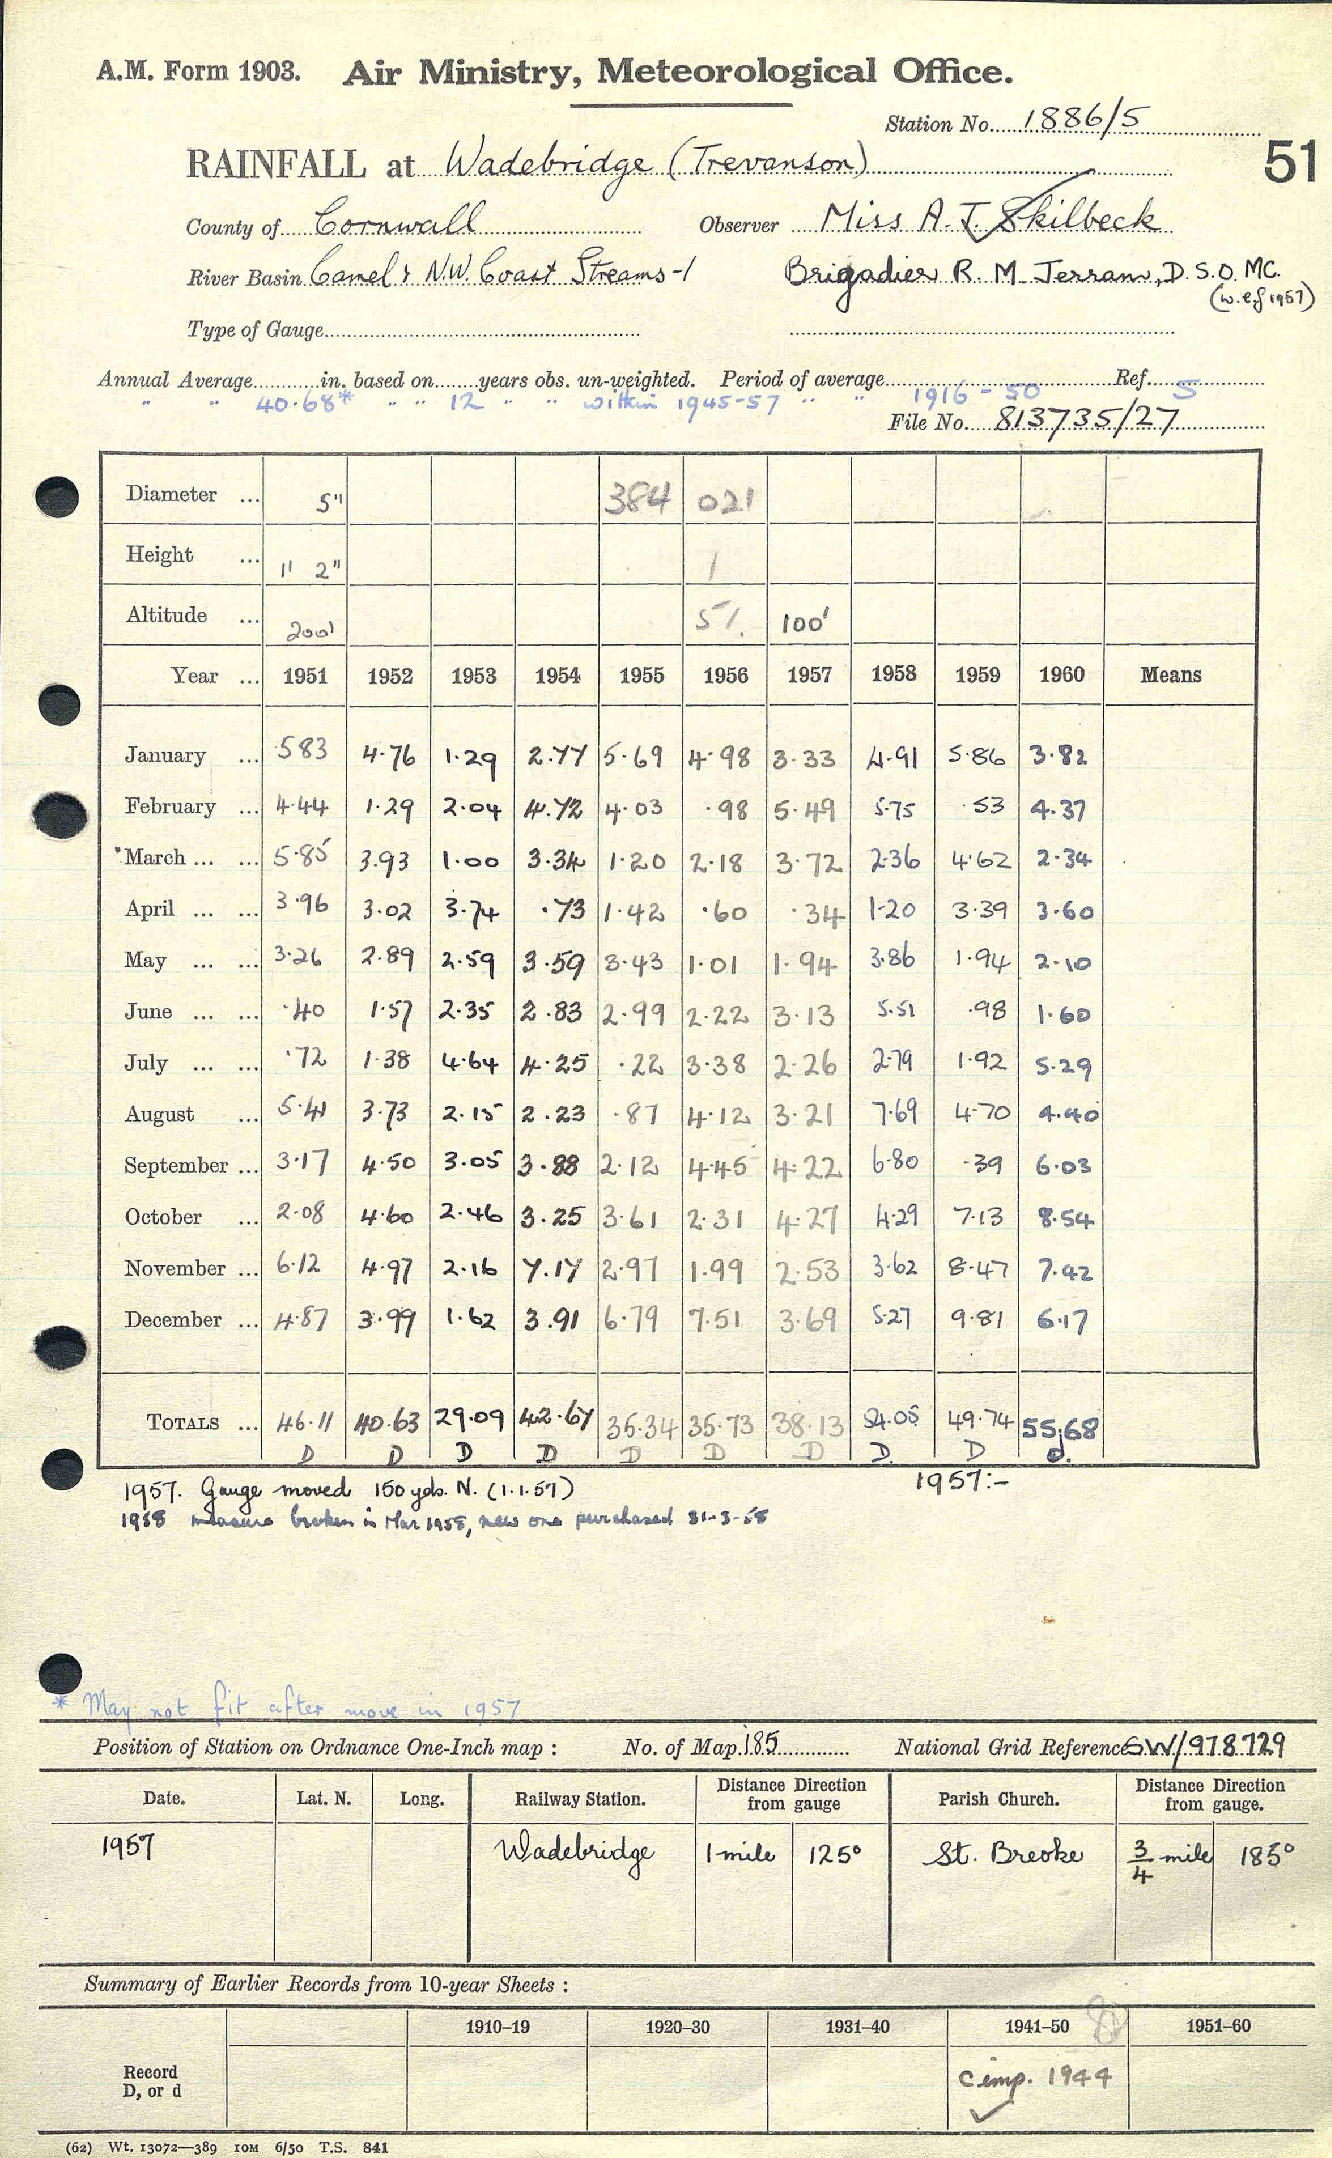 A.M. Form 1903. Air Ministry, Meteorological Office.
Station No. 1886/5
51
RAINFALL at Wadebridge (Trevanson)
County of Cornwall Observer Miss A. J. Skilbeck
River Basin Camel & N.W. Coast Streams-1 Brigadier R. M. Jerram, D.S.O. MC.
(w.e.f 1957)
Type of Gauge
Annual Average in. based on years obs. un-weighted. Period of average Ref.
" " 40.68* " " 12 " " within 1945-57 " " 1916-50 5
File No. 813735/27
Diameter ... 5" 384 021
Height ... 1' 2" 1
Altitude ... 200' 51. 100'
Year ... 1951 1952 1953 1954 1955 1956 1957 1958 1959 1960 Means
January ... 5.83 4.76 1.29 2.77 5.69 4.98 3.33 4.91 5.86 3.82
February ... 4.44 1.29 2.04 4.72 4.03 .98 5.49 5.75 .53 4.37
March ... ... 5.85 3.93 1.00 3.34 1.20 2.18 3.72 2.36 4.62 2.34
April ... ... 3.96 3.02 3.74 .73 1.42 .60 .34 1.20 3.39 3.60
May ... ... 3.26 2.89 2.59 3.59 3.43 1.01 1.94 3.86 1.94 2.10
June ... ... .40 1.57 2.35 2.83 2.99 2.22 3.13 5.51 .98 1.60
July ... ... .72 1.38 4.64 4.25 .22 3.38 2.26 2.79 1.92 5.29
August ... 5.41 3.73 2.15 2.23 .87 4.12 3.21 7.69 4.70 4.40
September ... 3.17 4.50 3.05 3.88 2.12 4.45 4.22 6.80 .39 6.03
October ... 2.08 4.60 2.46 3.25 3.61 2.31 4.27 4.29 7.13 8.54
November ... 6.12 4.97 2.16 7.17 2.97 1.99 2.53 3.62 8.47 7.42
December ... 4.87 3.99 1.62 3.91 6.79 7.51 3.69 5.27 9.81 6.17
TOTALS ... 46.11 40.63 29.09 42.67 35.34 35.73 38.13 54.05 49.74 55.68
D D D D D D D D. D d.
1957. Gauge moved 150 yds. N. (1.1.57) 1957:-
1958 measure broken in Mar 1958, new one purchased 31-3-58
* May not fit after move in 1957
Position of Station on Ordnance One-Inch map : No. of Map 185 National Grid Reference SW/978729
Date. Lat. N. Long. Railway Station. Distance from gauge Direction Parish Church. Distance from gauge. Direction
1957 Wadebridge 1 mile 125° St. Breoke 3/4 mile 185°
Summary of Earlier Records from 10-year Sheets :
1910-19 1920-30 1931-40 1941-50 1951-60
Record
D, or d
C imp. 1944
(62) Wt. 13072—389 10M 6/50 T.S. 841